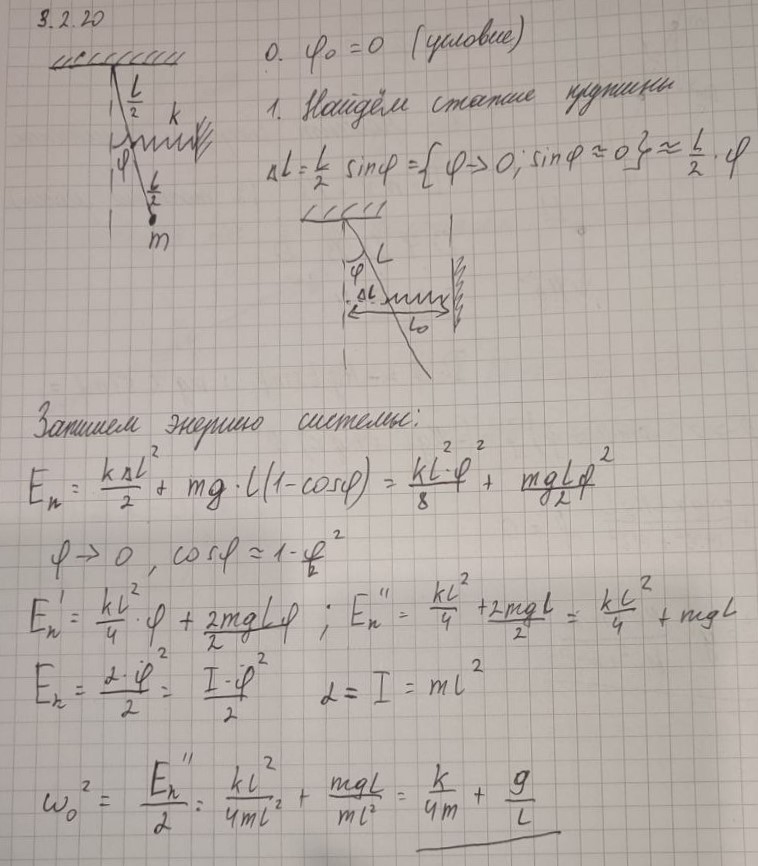 3.2.20
0. φ₀ = 0 (условие)
L/2
k
1. Найдём сжатие пружины
φ
L/2
m
ΔL = L/2 sinφ = {φ→0; sinφ≈0} ≈ L/2 · φ
φ
L
ΔL
L₀
Запишем энергию системы:
Eп = kΔL²/2 + mg·L(1-cosφ) = kL²·φ²/8 + mgLφ²/2
φ→0, cosφ ≈ 1-φ²/2
Eп' = kL²/4 · φ + 2mgLφ/2 ; Eп'' = kL²/4 + 2mgL/2 = kL²/4 + mgL
Eк = α·φ̇²/2 = I·φ̇²/2   α = I = mL²
ω₀² = Eп''/α = kL²/4mL² + mgL/mL² = k/4m + g/L